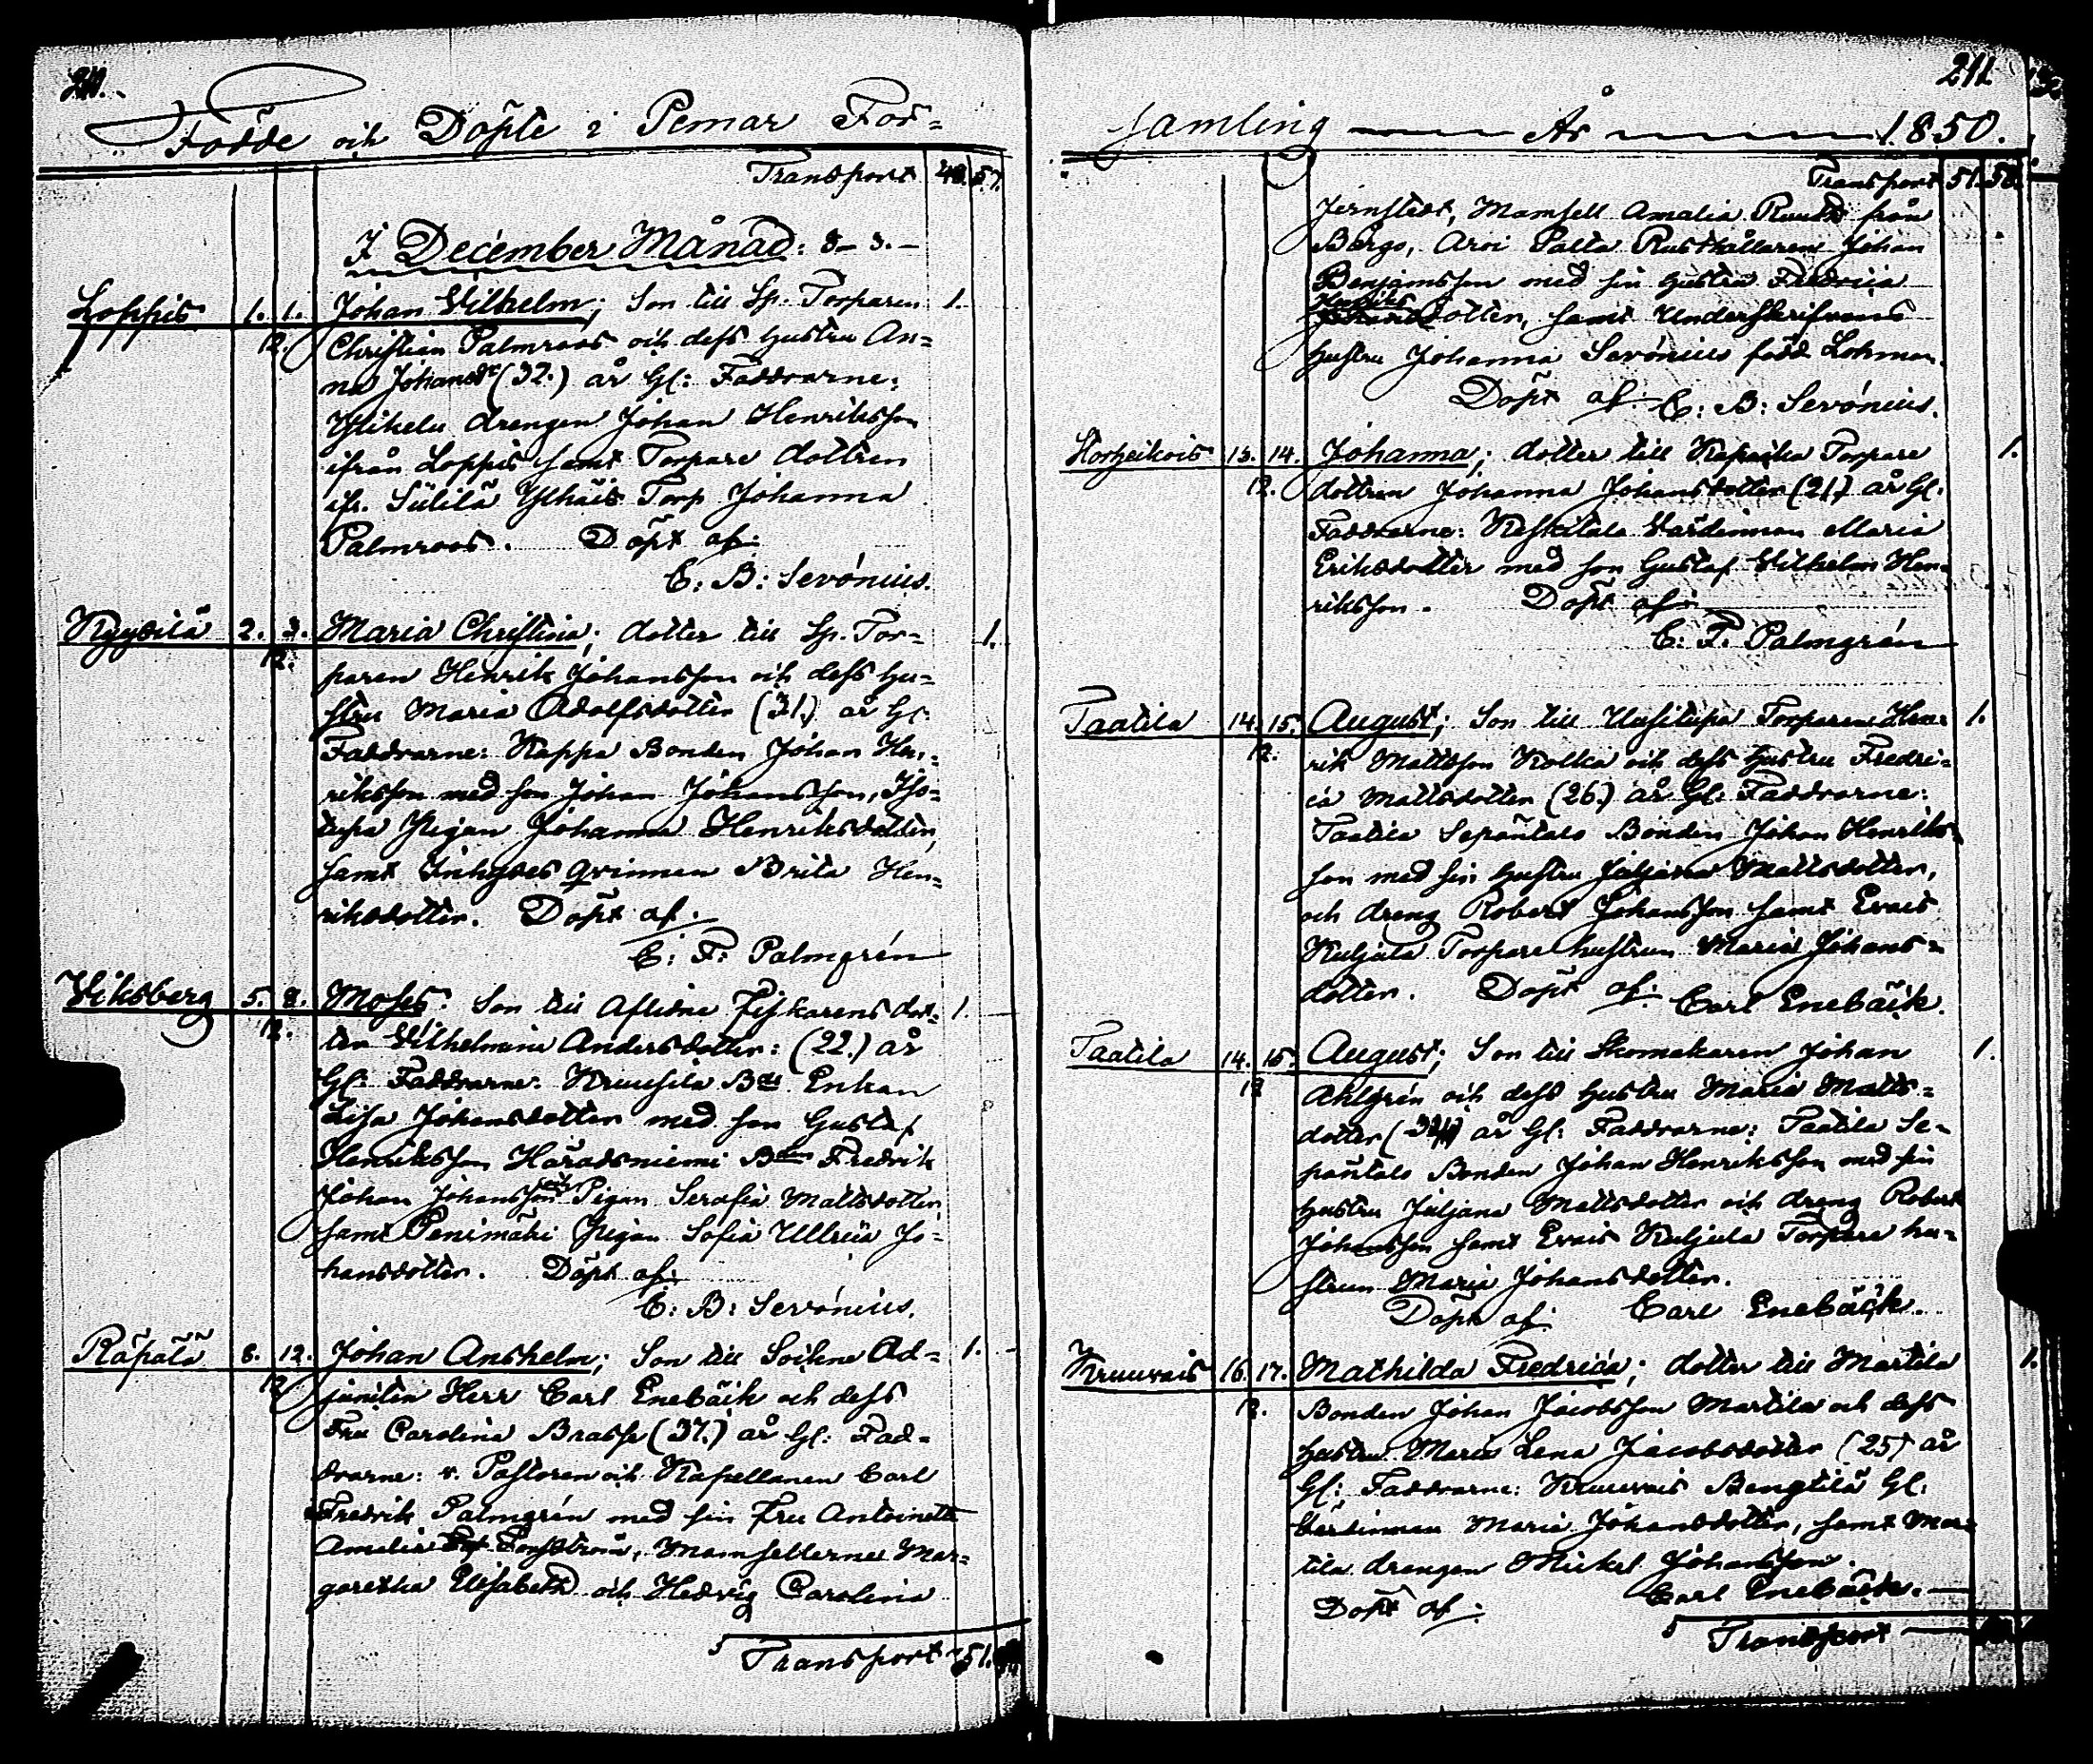 Födde och Döpte i Pemar För=
Transport 48. 57.
I December Månad:
Loppis 1. 1. Johan Vilhelm; Son till Sp: Torparen 1.
12. Christian Palmroos och dess hustru An=
na Johansdr (32.) år Gl: Faddrarne:
drengen Johan Henriksson
ifrån Loppis samt Torpare dottren
ifr. Torp Johanna
Palmroos. Döpt af:
C: B: Sevónius.
2. 3. Maria Christina; dotter till Sp. Tor= 1.
12. paren Henrik Johansson och dess hu=
stru Maria Adolfsdotter (31.) år Gl:
Faddrarne: Kappa Bonden Johan Hen=
riksson med son Johan Johansson, Iso=
tupa Pigan Johanna Henriksdotter,
samt Inhyses qvinnan Brita Hen=
riksdotter. Döpt af:
C: F: Palmgrén
Viksberg 5. 8. Moses: Son till aflidne Fiskarens dot= 1.
12. ter Vilhelmina Andersdotter: (22.) år
Gl: Faddrarne: Kruusila Bds Enkan
Lisa Johansdotter med son Gustaf
Henriksson Häradsniemi Bdns Fredrik
Johan Johansson och Pigan Serafia Mattsdotter,
samt Penimäki Pigan Sofia Ullrica Jo=
hansdotter. Döpt af:
C: B: Sevónius.
Räpälä 8. 12. Johan Anshelm; Son till Sockne Ad= 1.
12 juncten Herr Carl Enebäck och dess
Fru Carolina Brasse (37.) år Gl: Fad=
drarne: v. Pastoren och Kapellanen Carl
Fredrik Palmgrén med sin Fru Antoinette
Amalia Forsström, Mamsellerne Mar=
garetha Elisabeth och Hedvig Carolina
5 Transport 51.
211
samling År 1850.
Transport 51. 58.
Jernstedt, Mamsell Amalia från
Borgo, Arvi Palta Rusthållaren Johan
Benjamsson med sin hustru Fredrica
Henriksdotter, samt Underskrifvarens
hustru Johanna Sevónius född Lohman.
Döpt af: C: B: Sevónius.
13. 14. Johanna; dotter till Torpare 1.
12. dottren Johanna Johansdotter (21.) år Gl:
Faddrarne: Keskitalo Värdinnan Maria
Eriksdotter med son Gustaf Vilhelm Hen=
riksson. Döpt af:
C: F: Palmgrén
Taatila 14. 15. August; Son till Uusitupa Torparen Hen= 1.
12. rik Mattsson Kolka och dess hustru Fredri=
ca Mattsdotter (26.) år Gl: Faddrarne:
Taatila Sepäntalo Bonden Johan Henriks=
son med sin hustru Juljana Mattsdotter,
och dreng Robert Johansson samt Evais
Kuljula Torpare hustrun Maria Johans=
dotter. Döpt af: Carl Enebäck.
Taatila 14. 15. August; Son till Skomakaren Johan 1.
12 Ahlgrén och dess hustru Maria Matts=
dotter år Gl: Faddrarne: Taatila Se=
päntalo Bonden Johan Henriksson med sin
hustru Juljana Mattsdotter och dreng Robert
Johansson samt Evais Kuljula Torpare hu=
strun Maria Johansdotter.
Döpt af: Carl Enebäck.
Kruuvais 16. 17. Mathilda Fredrica; dotter till Martila 1.
12. Bonden Johan Jacobsson Martila och dess
hustru Maria Lena Jacobsdotter (25) år
Gl: Faddrarne: Kruuvais Bengtilä Gl:
Värdinnan Maria Johansdotter, samt Mar=
tila drengen Mickel Johansson.
Döpt af: Carl Enebäck.
5 Transport